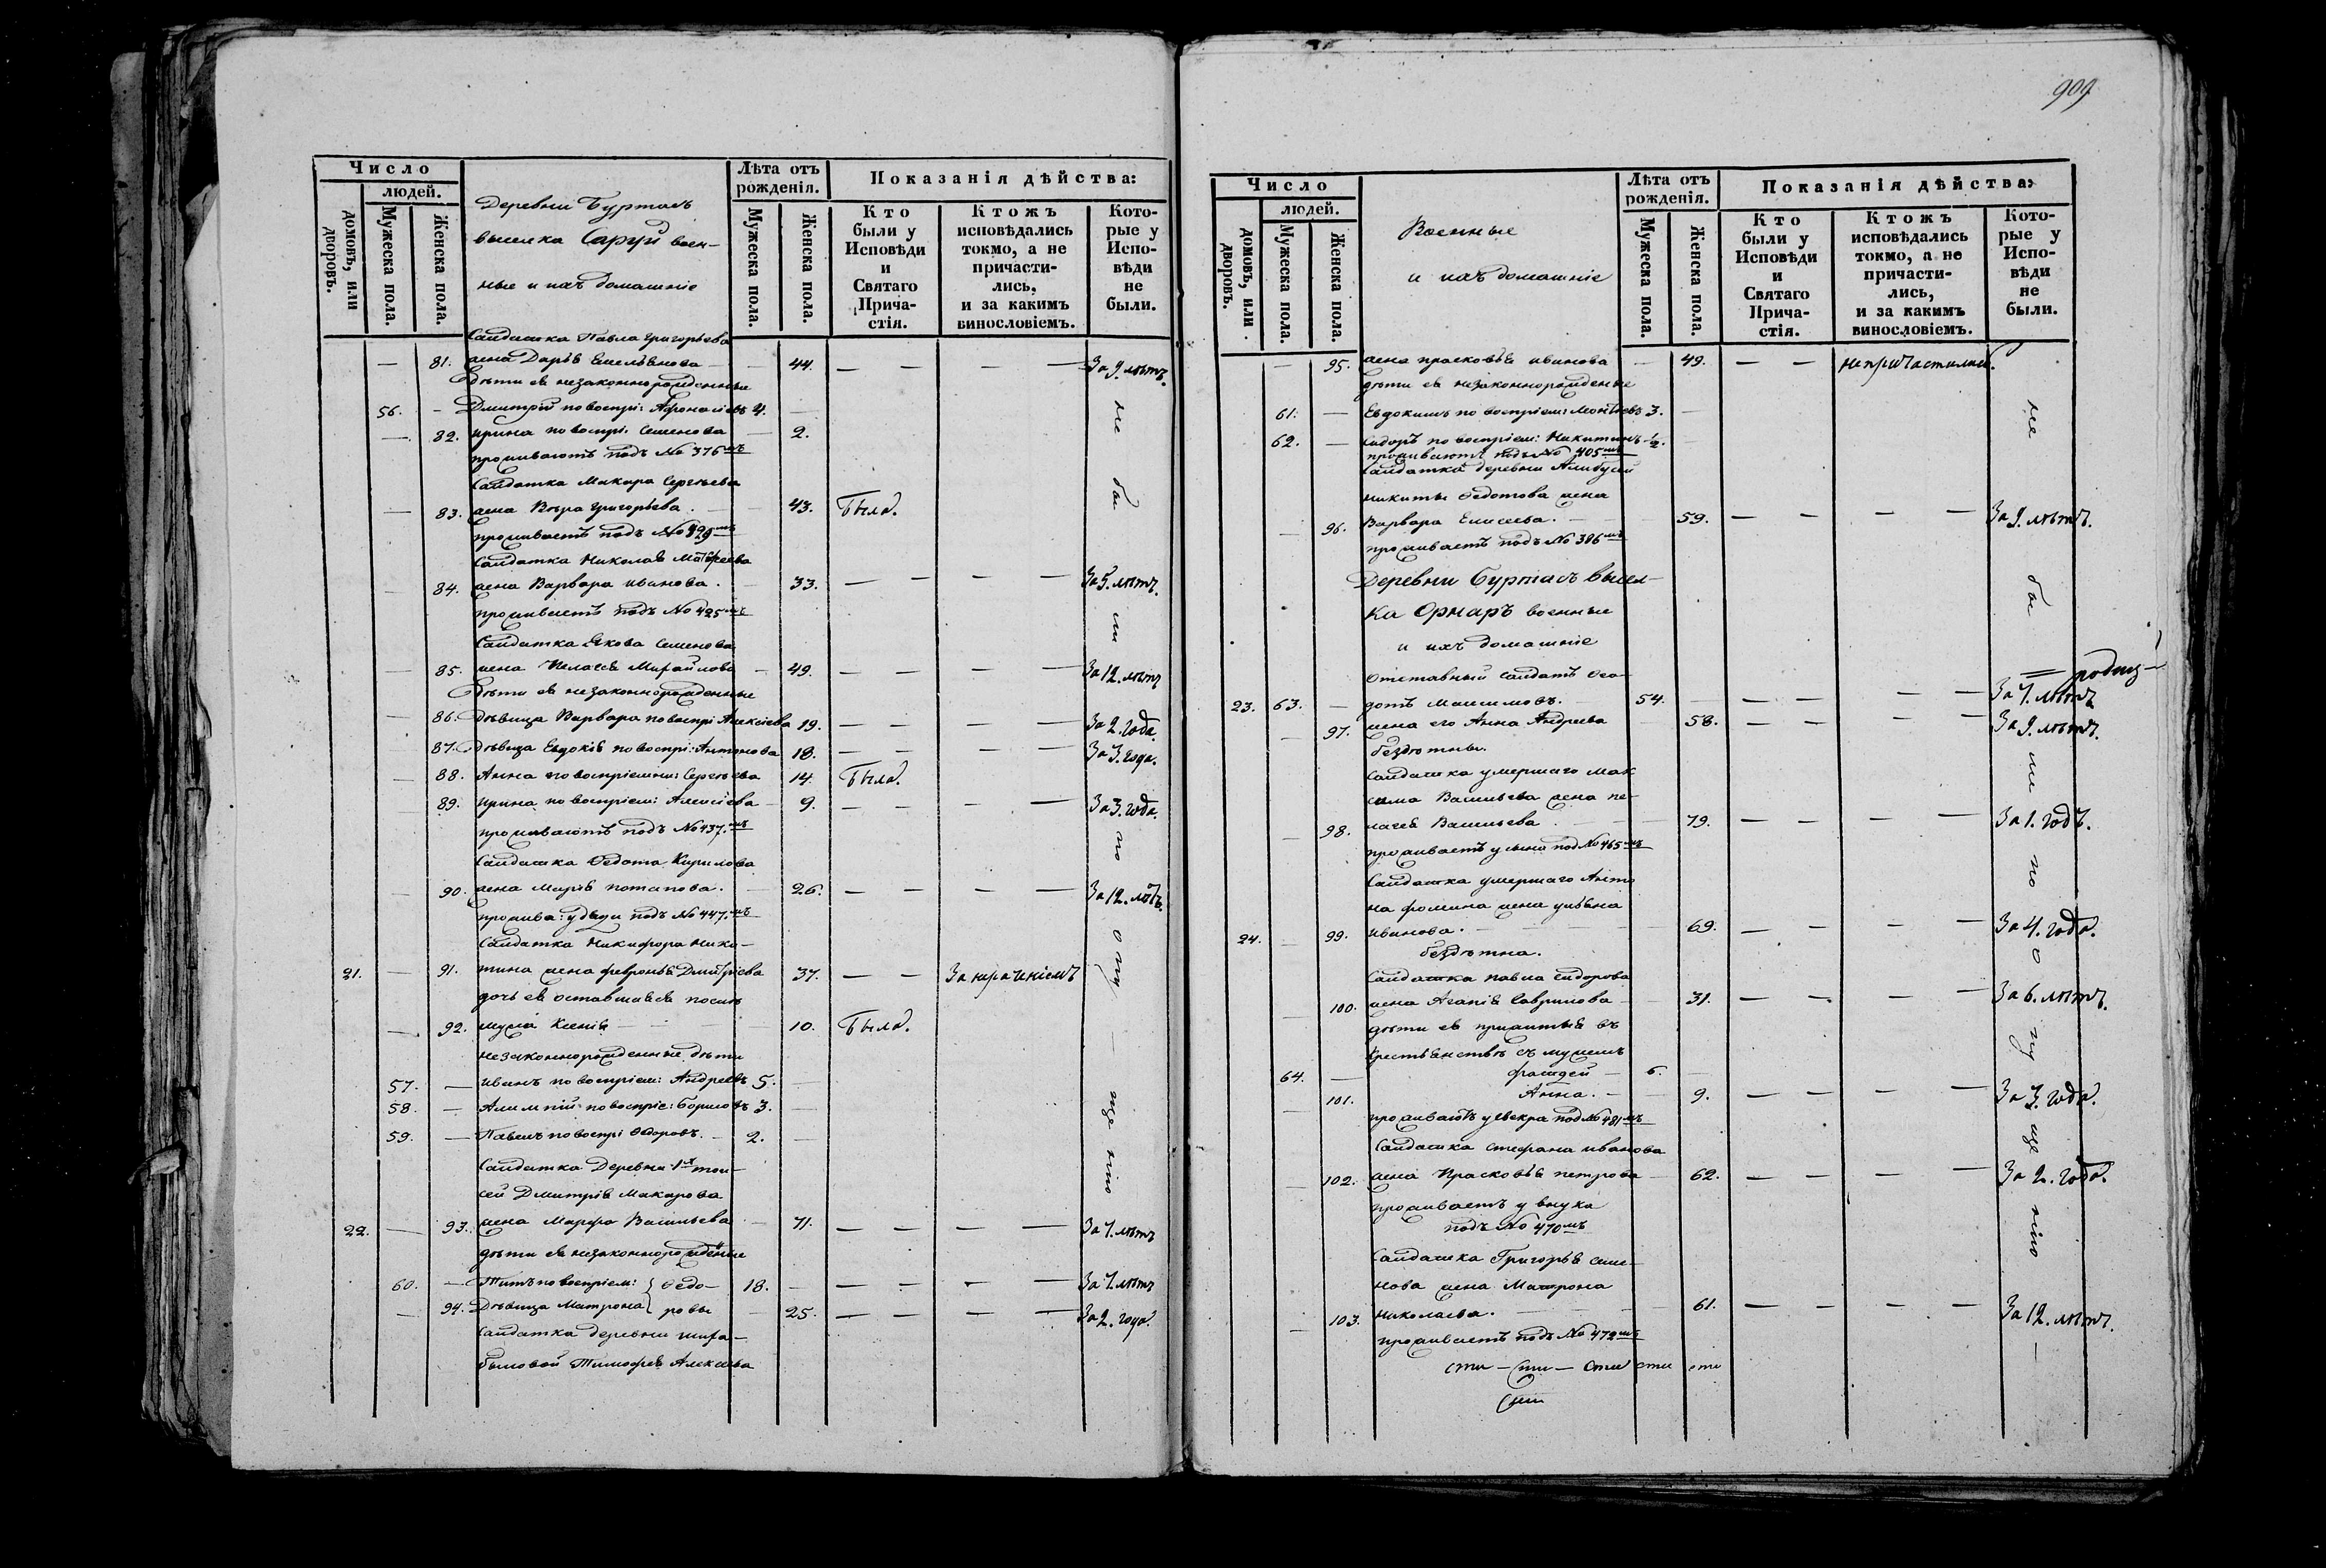 909
Число
людей.
домовъ, или дворовъ.
Мужеска пола.
Женска пола.
Деревни Буртасъ
выселка Саруй воен-
ные и ихъ домашніе
Лѣта отъ рожденія.
Мужеска пола.
Женска пола.
Показанія дѣйства:
Кто были у Исповѣди и Святаго Прича-стія.
Ктожъ исповѣдались токмо, а не причасти-лись, и за какимъ винословіемъ.
Кото-рые у Испо-вѣди не были.
Салдатка Павла Григорьева
— 81. жена Дарья Емельянова — 44. — — — — За 9. лѣтъ.
Дѣти ея незаконнорожденные
56. — Дмитрій по воспрі: Афонасіевъ 4. —
— 82. Ирина по воспрі. Семенова — 2.
проживаютъ подъ № 376мъ
Салдатка Макара Сергѣева
— 83. жена Вѣра Григорьева. — 43. Была.
проживаетъ подъ № 429мъ
Салдатка Николая Матфеева
— 84. жена Варвара Иванова. — 33. — — — — За 5. лѣтъ.
проживаетъ подъ № 425мъ
Салдатка Якова Семенова
— 85. жена Пелагея Михайлова — 49. — — — — За 12. лѣтъ
Дѣти ея незаконнорожденные
86. Дѣвица Варвара по воспрі Алексіева 19. — — — — За 2. года.
87. Дѣвица Евдокія по воспрі: Антонова 18. — — — — За 3. года.
— 88. Анна по воспріемни: Сергѣева 14. Была.
— 89. Ирина по воспріем: Алексіева — 9. — — — — За 3. года.
проживаютъ подъ № 437.мъ
Салдатка Ѳедота Кирилова
— 90. жена Марья Потапова. — 26. — — — — За 12. лѣтъ.
прожива: у дяди подъ № 447.мъ
Салдатка Никифора Ники-
21. — 91. тина жена Февронья Дмитріева 37. — — За нераченіемъ
дочь ея оставшаяся послѣ
— 92. мужа Ксенія — — 10. Была.
незаконнорожденные дѣти
57. — Иванъ по воспріем: Андреевъ 5. —
58. — Алимпій по воспріе: Борисовъ 3. —
59. — Павелъ по воспрі Ѳедоровъ. — 2. —
Салдатка Деревни 1х тои-
сей Дмитрія Макарова
22. — 93. жена Марфа Васильева — 71. — — — — За 7. лѣтъ
дѣти ея незаконнорожденные
60. — Титъ по воспріем: Ѳедо- 18. — — — — За 7. лѣтъ
— 94. Дѣвица Матрона ровы — 25. — — — — За 2. года.
Салдатка деревни
Тимофея Алексѣева
не бы ли по о пу ще нію
Число
людей.
домовъ, или дворовъ.
Мужеска пола.
Женска пола.
Военные
и ихъ домашніе
Лѣта отъ рожденія.
Мужеска пола.
Женска пола.
Показанія дѣйства:
Кто были у Исповѣди и Святаго Прича-стія.
Ктожъ исповѣдались токмо, а не причасти-лись, и за какимъ винословіемъ.
Кото-рые у Испо-вѣди не были.
— 95. жена Прасковья Иванова — 49. — — не причастилась.
дѣти ея незаконнорожденые
61. — Евдокимъ по воспріем: 3. —
62. — Сидоръ по воспріем: Никитинъ ½. —
проживаютъ подъ № 405мъ
Салдатка деревни
Никиты Ѳедотова жена
— 96. Варвара Елисеева. — 59. — — — — За 9. лѣтъ.
проживаетъ подъ № 386мъ
Деревни Буртасъ высел-
ка Орнаръ военные
и ихъ домашніе
Отставный салдатъ Ѳео-
23. 63. — дотъ Максимовъ. — 54. — — — — — За 7. лѣтъ
— 97. жена его Анна Андреева — 58. — — — — За 9. лѣтъ.
бездѣтны.
Салдатка умершаго Мак
сима Васильева жена Пе-
— 98. лагея Васильева — 79. — — — — За 1. годъ.
проживаетъ у сына под № 465мъ
Салдатка умершаго Анто
на Фомина жена Ульяна
24. — 99. Иванова. — 69. — — — — За 4. года.
бездѣтна.
Салдатка Павла Сидорова
— 100. жена Агапія Гаврилова — 31. — — — — За 6. лѣтъ.
дѣти ея прижитыя въ
крестьянствѣ съ мужемъ
64. — Фаддей — 6. —
— 101. Анна. — 9. — — — — За 3. года.
проживаютъ у свекра под № 481мъ
Салдатка Стефана Иванова
— 102. жена Прасковья Петрова — 62. — — — — За 2. года.
проживаетъ у внука
подъ № 470мъ
Салдатка Григорья Семе-
нова жена Матрона
— 103. Николаева. — 61. — — — — За 12. лѣтъ.
проживаетъ подъ № 472мъ
не бы ли по о пу ще нію —